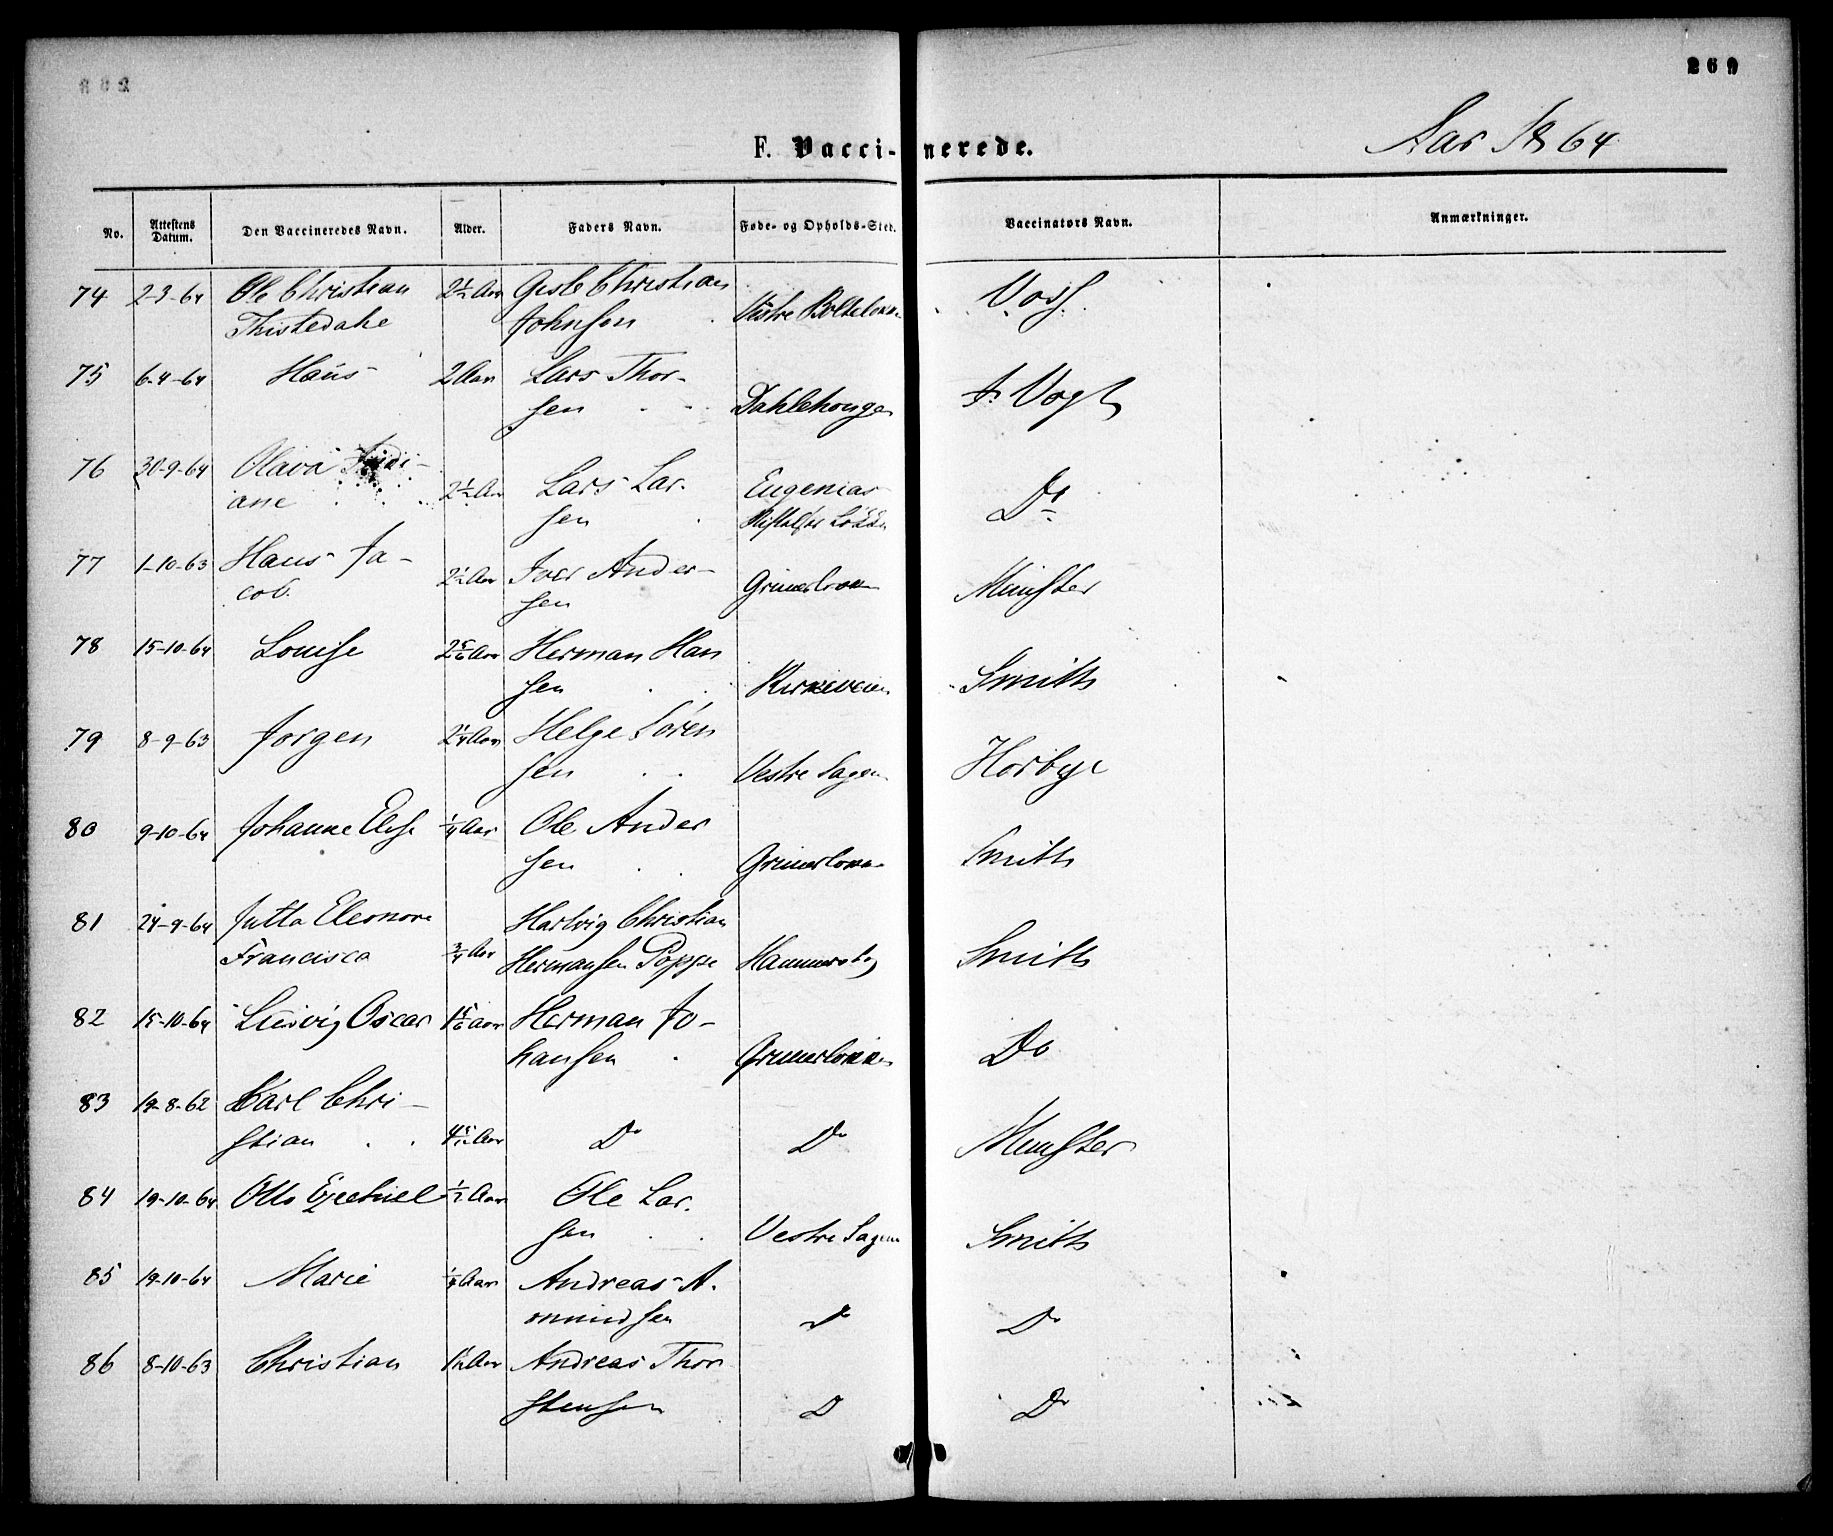 269
F. Vaccinerede.
Aar 1864
No. Attestens Datum. Den Vaccineredes Navn. Alder. Faders Navn. Føde- og Opholds-Sted. Vaccinators Navn. Anmærkninger.
74 2-3-64 Ole Christian 2½ Aar Gisle Christian
Thistedahe Johnsen Vestre
75 6-4-64 Hans 2 Aar Lars Thor-
sen Dahlehougen J. Vogt
76 30-9-64 Olava
ane 2½ Aar Lars Lar-
sen Eugenias Stiftelse Løkken Do
77 1-10-63 Hans Ja-
cob. 2½ Aar Iver Ander-
sen Grünerløkken Münster
78 15-10-64 Louise 2 5/6 Aar Herman Han
sen Kirkeveien Smith
79 8-9-63 Jørgen 2¼ Aar Helge Søren
sen Vestre Sagene Horbye
80 9-10-64 Johanne Elise ¼ Aar Ole Ander
sen Grünerløkken Smith
81 24-9-64 Jutta Eleonora Hartvig Christian
Francisca ¾ Aar Hermansen Poppe Hammersborg Smith
82 15-10-64 Ludvig Oscar 1 5/6 Aar Herman Jo-
hansen Grünerløkken Do
83 19-8-62 Karl Chri-
stian 4 5/12 Aar Do Do Münster
84 19-10-64 Otto Ezechiel ½ Aar Ole Lar-
sen Vestre Sagene Smith
85 19-10-64 Marie ¼ Aar Andreas A-
mundsen Do Do
86 8-10-63 Christian 1½ Aar Andreas Thor
stensen D Do